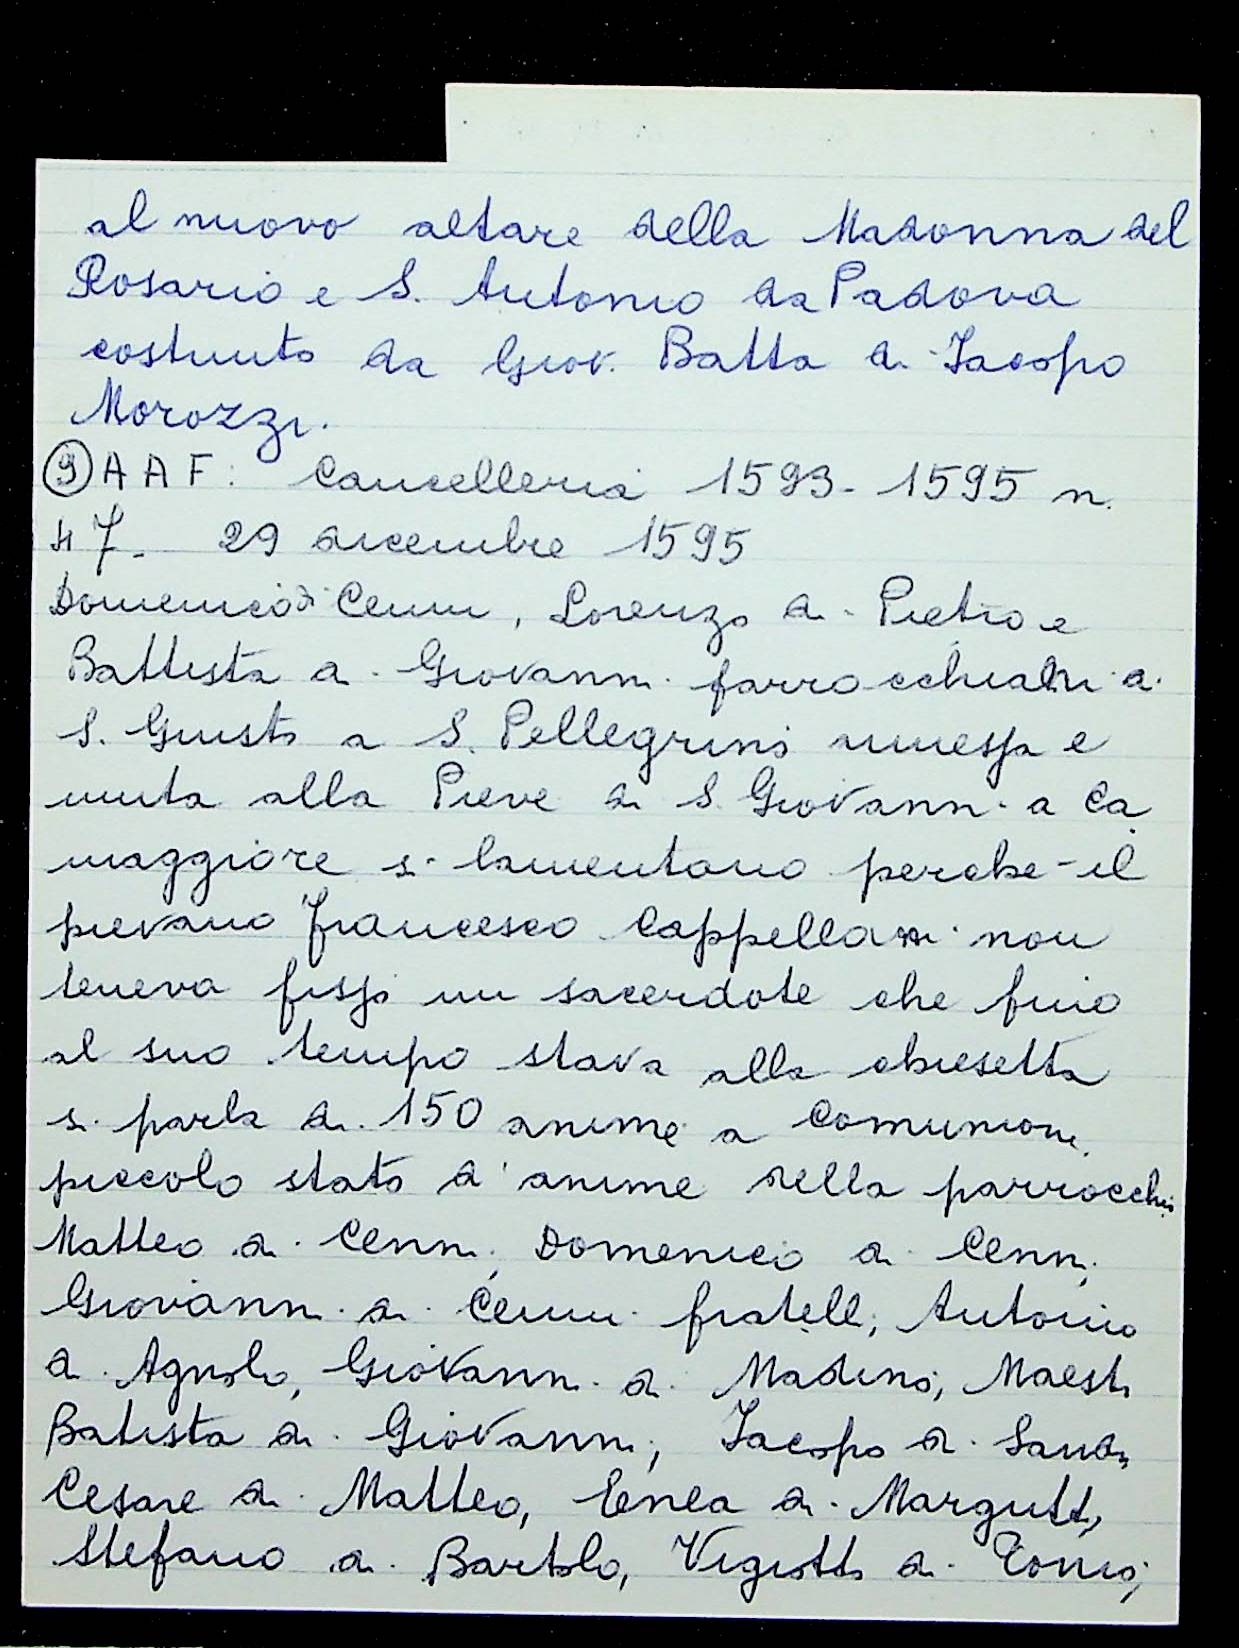 al nuovo altare della Madonna del
Rosario e S. Antonio da Padova
costruito da Giov. Batta di Jacopo
Morozzi.
⑨ AAF: Cancelleria 1593-1595 n.
47- 29 dicembre 1595
Domenico di Cenni, Lorenzo di Pietro e
Battista di Giovanni parrocchiani di
S. Giusto a S. Pellegrino annessa e
unita alla Pieve di S Giovanni a Ca
maggiore si lamentano perche il
pievano Francesco Cappellani non
teneva fisso un sacerdote che fino
al suo tempo stava alla chiesetta
si parla di 150 anime a comunione.
piccolo stato d'anime della parrocchia
Matteo di Cenni, Domenico di Cenni,
Giovanni di Cenni fratelli, Antonio
di Agnolo, Giovanni di Madino, Maestro
Batista di Giovanni, Jacopo di Sandro,
Cesare di Matteo, Enea di Margutto,
Stefano di Bartolo, Vigiotto di Tonio,